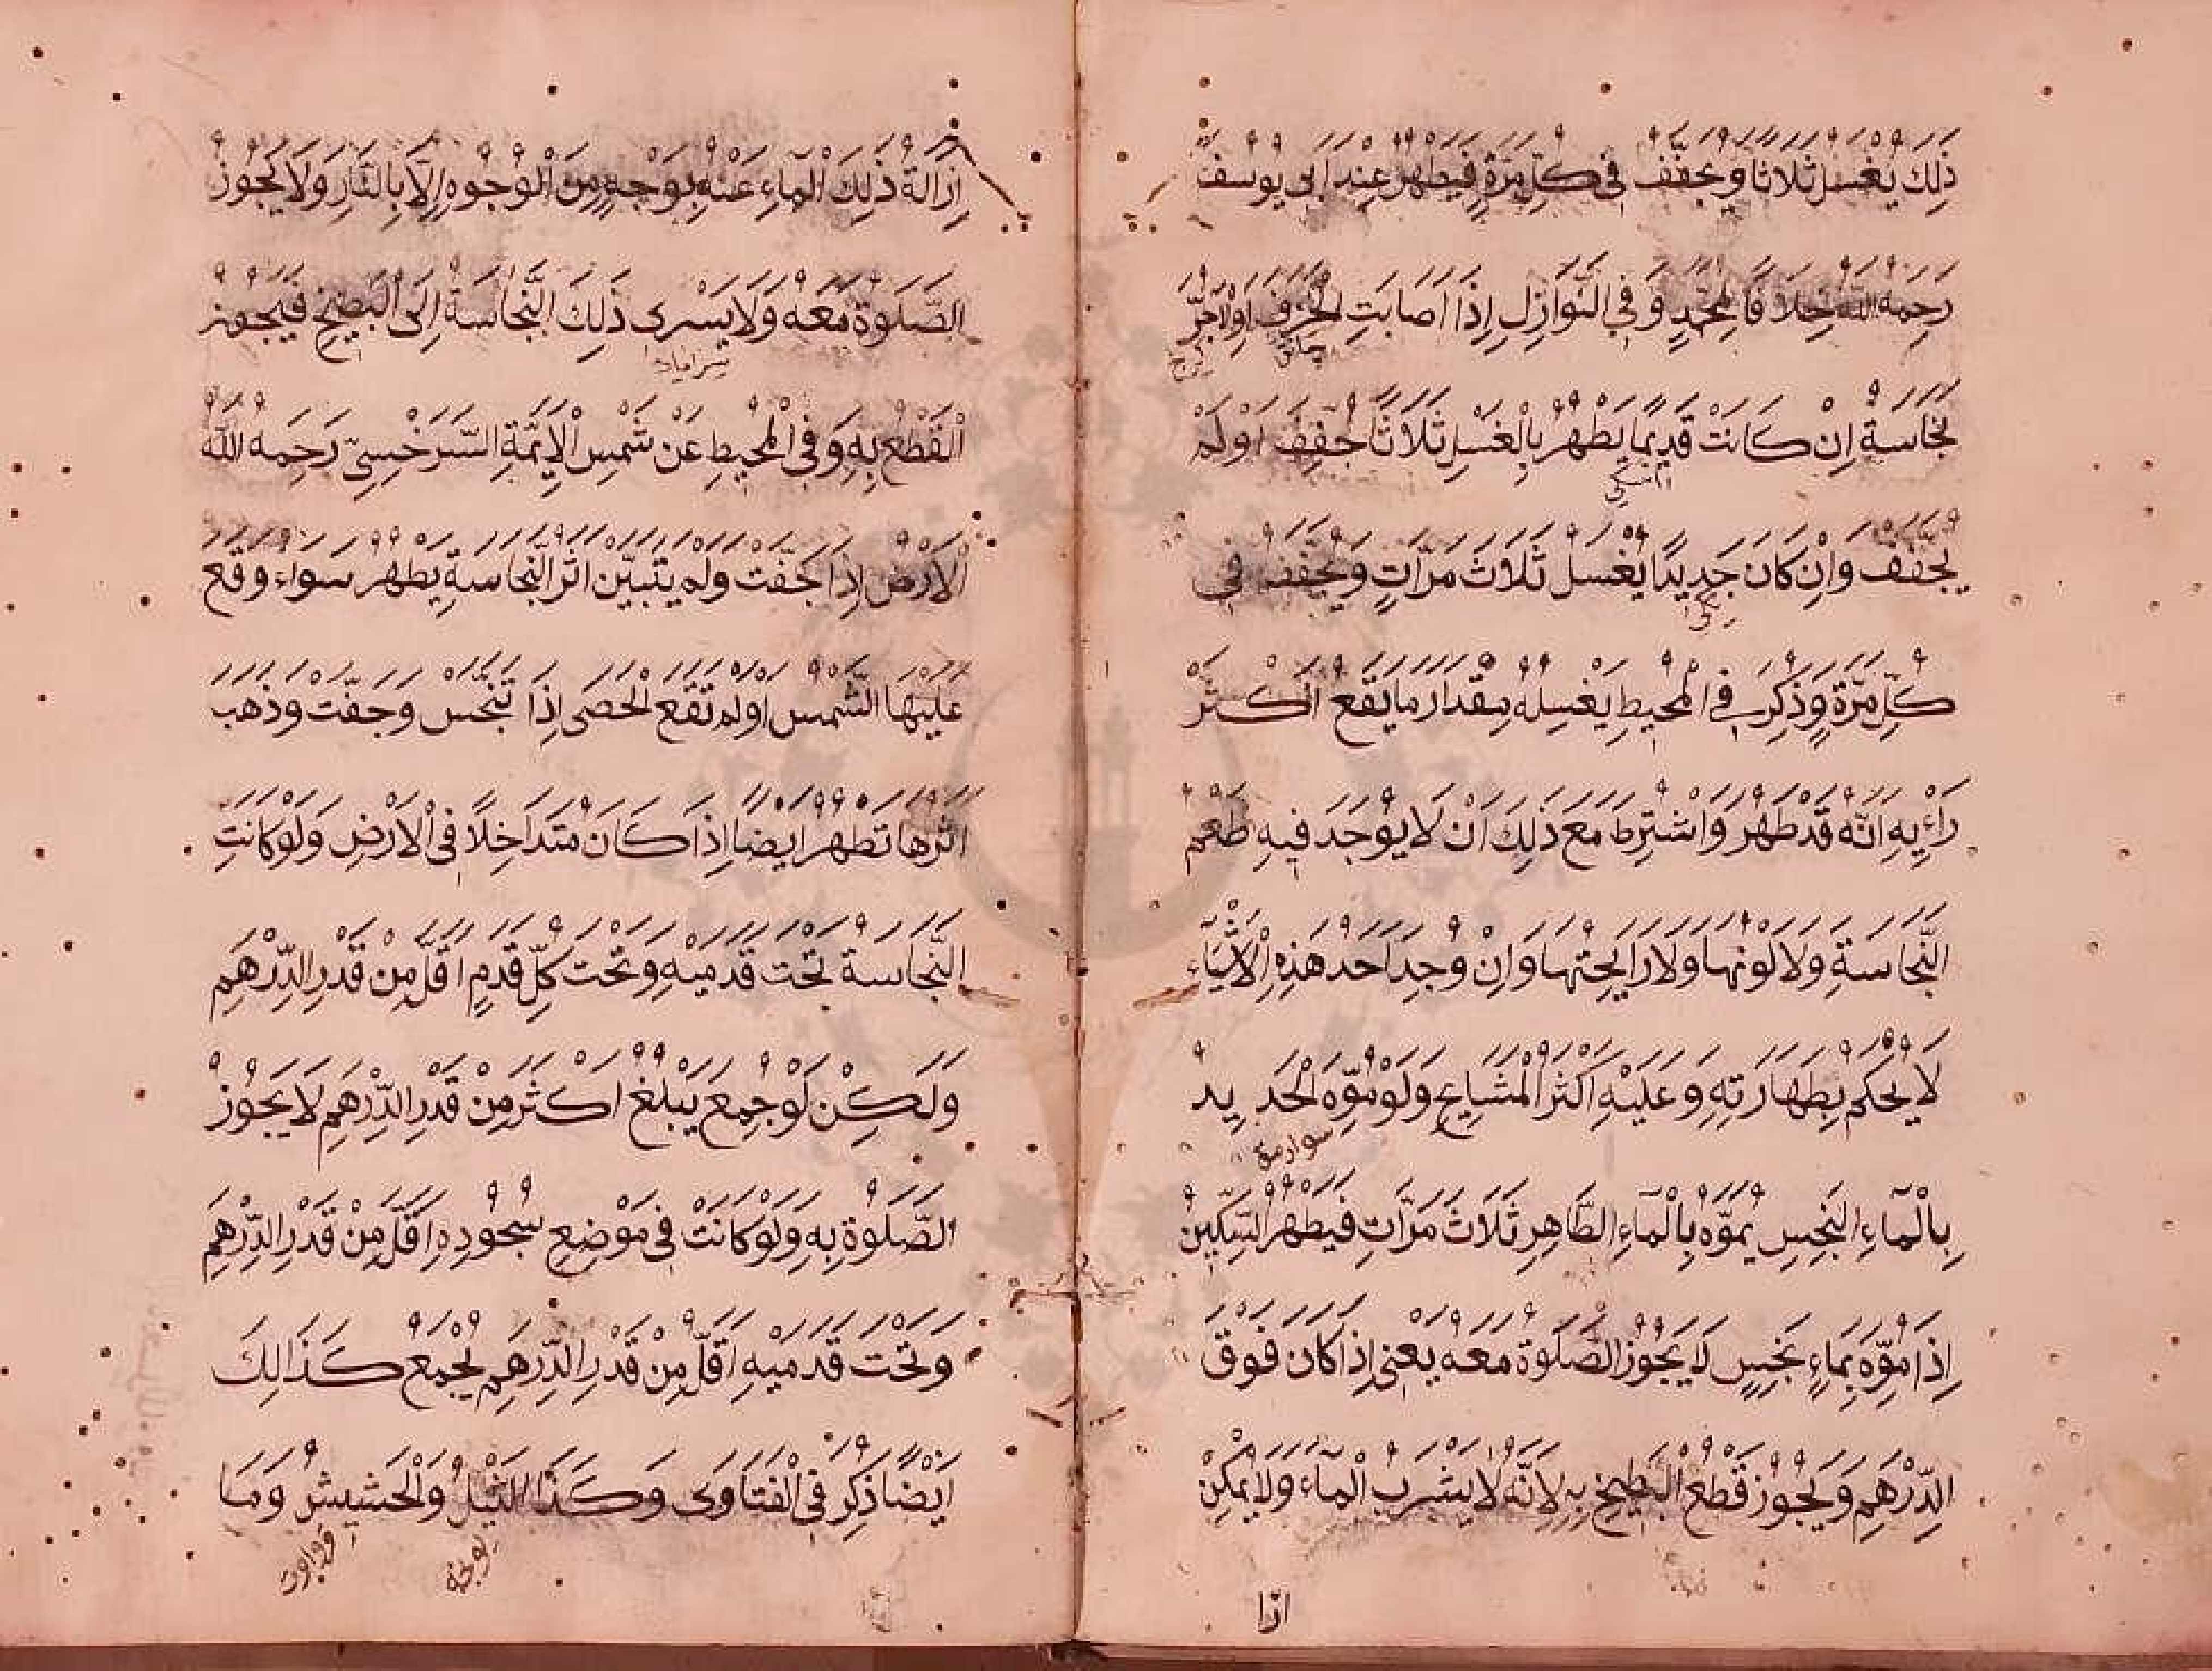 ذَلِكَ يُغْسَلُ ثَلَاثًا وَيُجَفَّفُ فِي كُلِّ مَرَّةٍ فَيَطْهُرُ عِنْدَ اَبِي يُوسُفَ
رَحِمَهُ اللّٰهُ خِلَافًا لِمُحَمَّدٍ وَفِي النَّوَازِلِ اِذَا اَصَابَتِ الْخَزَفَ اَوِ الْآجُرَّ
نَجَاسَةٌ اِنْ كَانَتْ قَدِيمًا يَطْهُرُ بِالْغَسْلِ ثَلَاثًا جُفِّفَ اَوْ لَمْ
يُجَفَّفْ وَاِنْ كَانَ جَدِيدًا يُغْسَلُ ثَلَاثَ مَرَّاتٍ وَيُجَفَّفُ فِي
كُلِّ مَرَّةٍ وَذُكِرَ فِي الْمُحِيطِ يَغْسِلُهُ مِقْدَارَ مَا يَقَعُ اَكْثَرُ
رَاْيِهِ اَنَّهُ قَدْ طَهُرَ وَاشْتُرِطَ مَعَ ذَلِكَ اَنْ لَا يُوْجَدَ فِيهِ طَعْمُ
النَّجَاسَةِ وَلَا لَوْنُهَا وَلَا رَايِحَتُهَا وَاِنْ وُجِدَ اَحَدُ هَذِهِ الْاَشْيَآءِ
لَا يُحْكَمُ بِطَهَارَتِهِ وَعَلَيْهِ اَكْثَرُ الْمَشَايِخِ وَلَوْ مُوِّهَ الْحَدِيدُ
بِالْمَآءِ النَّجِسِ يُمَوَّهُ بِالْمَآءِ الطَّاهِرِ ثَلَاثَ مَرَّاتٍ فَيَطْهُرُ السِّكِّينُ
اِذَا مُوِّهَ بِمَاءٍ نَجِسٍ لَا يَجُوزُ الصَّلَوةُ مَعَهُ يَعْنِى اِذَا كَانَ فَوْقَ
الدِّرْهَمِ وَيَجُوزُ قَطْعُ الْبَطِّيخِ بِهِ لِاَنَّهُ لَا يَشْرَبُ الْمَآءَ وَلَا يُمْكِنُ
ازا
اِزَالَةُ ذَلِكَ الْمَآءِ عَنْهُ بِوَجْهٍ مِنَ الْوُجُوهِ اِلَّا بِالنَّارِ وَلَا يَجُوزُ
الصَّلَوةُ مَعَهُ وَلَا يَسْرِى ذَلِكَ النَّجَاسَةُ اِلَى الْبَطِّيخِ فَيَجُوزُ
الْقَطْعُ بِهِ وَفِي الْمُحِيطِ عَنْ شَمْسِ الْاَئِمَّةِ السَّرَخْسِىِّ رَحِمَهُ اللّٰهُ
الْاَرْضُ اِذَا جَفَّتْ وَلَمْ يَتَبَيَّنْ اَثَرُ النَّجَاسَةِ يَطْهُرُ سَوَاءٌ وَقَعَ
عَلَيْهَا الشَّمْسُ اَوْ لَمْ تَقَعْ الْحَصَى اِذَا تَنَجَّسَ وَجَفَّتْ وَذَهَبَ
اَثَرُهَا تَطْهُرُ اَيْضًا اِذَا كَانَ مُتَدَاخِلًا فِى الْاَرْضِ وَلَوْ كَانَتِ
النَّجَاسَةُ تَحْتَ قَدَمَيْهِ وَتَحْتَ كُلِّ قَدَمٍ اَقَلُّ مِنْ قَدْرِ الدِّرْهَمِ
وَلَكِنْ لَوْ جُمِعَ يَبْلُغُ اَكْثَرَ مِنْ قَدْرِ الدِّرْهَمِ لَا يَجُوزُ
الصَّلَوةُ بِهِ وَلَوْ كَانَتْ فِى مَوْضِعِ سُجُودِهِ اَقَلَّ مِنْ قَدْرِ الدِّرْهَمِ
وَتَحْتَ قَدَمَيْهِ اَقَلَّ مِنْ قَدْرِ الدِّرْهَمِ يُجْمَعُ كَذَالِكَ
اَيْضًا ذُكِرَ فِى الْفَتَاوَى وَكَذَا الثَّيِّلُ وَالْحَشِيشُ وَمَا